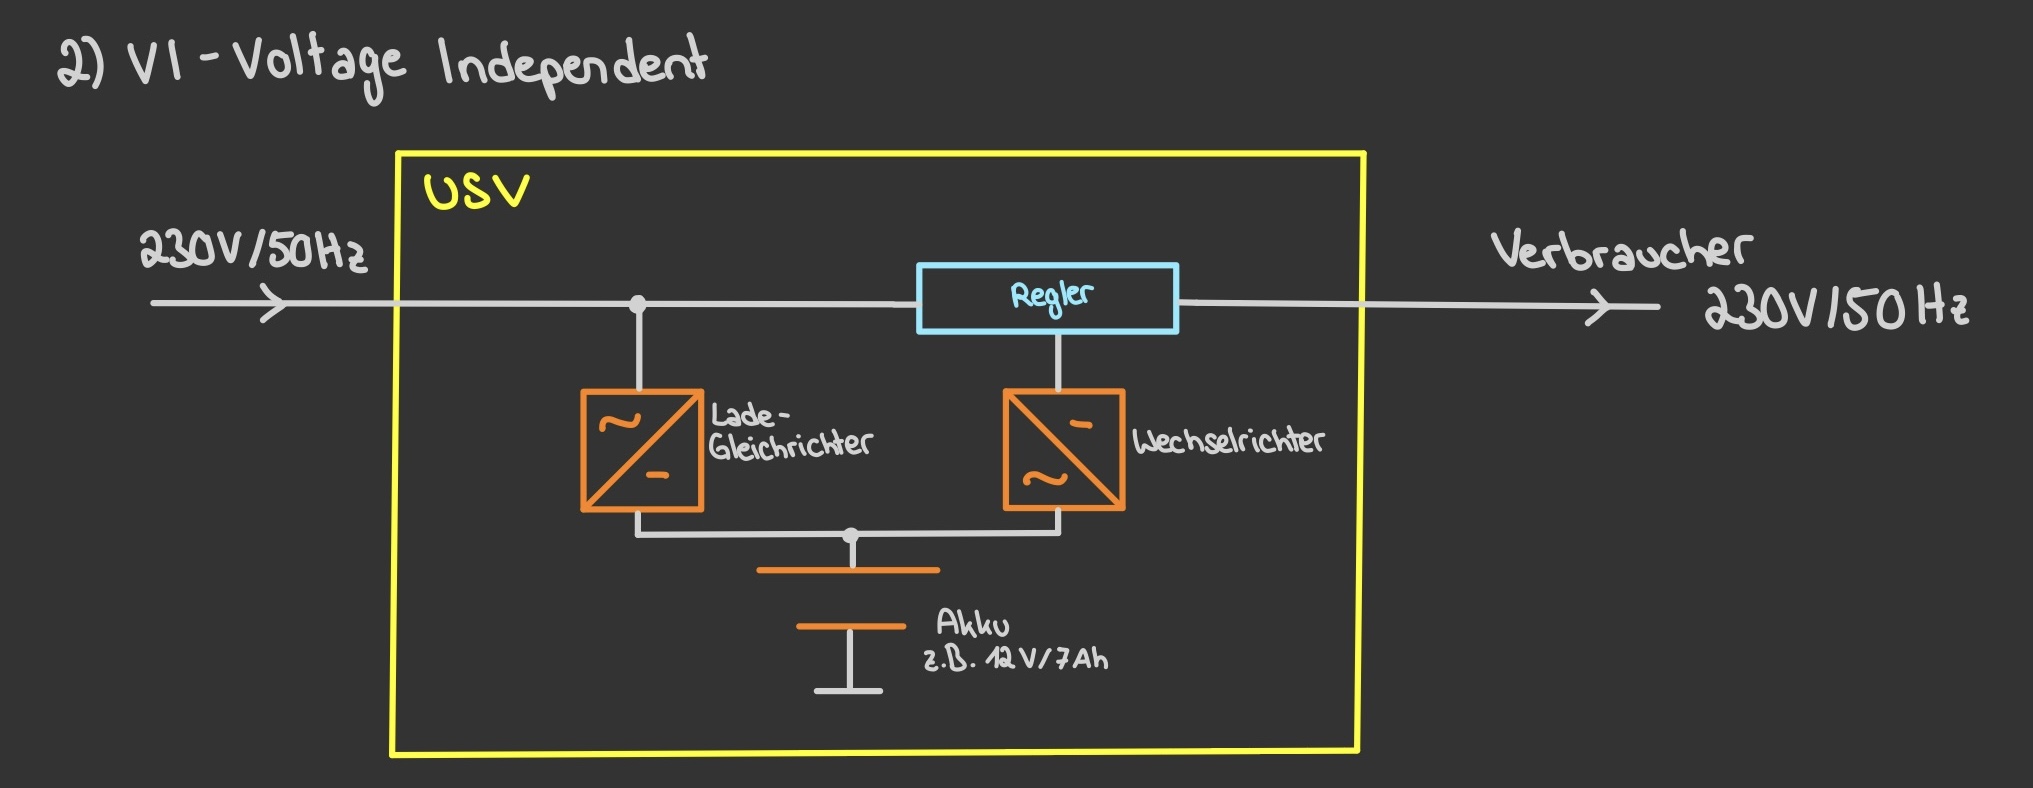 2) VI - Voltage Independent
USV
230V/50Hz
Regler
Verbraucher
230V/50Hz
Lade-
Gleichrichter
~
-
Wechselrichter
-
~
Akku
z.B. 12V/7Ah